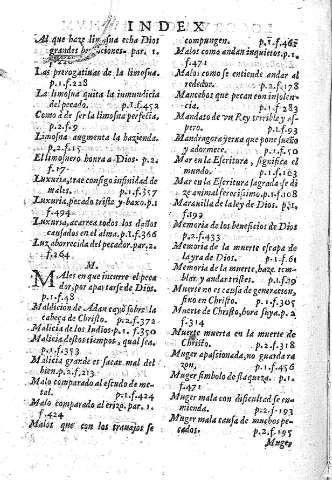 INDEX
Al que haze limosna echa Dios
grandes bendiciones. par. 1.
f. 228
Las prerogatinas de la limosna.
p.1.f.228
La limosna quita la inmundicia
del pecado. p.1.f.452
Como a de ser la limosna perfecta,
p.2.f.9
Limosna augmenta la hazienda.
p.2.f.15
El limosnero honra a Dios. p.2.
f.17
Luxuria, trae consigo infinidad de
males. p.1.f.357
Luxuria, pecado triste y baxo. p.1
f.494
Luxuria, acarea todos los daños
causados en el alma. p.1.f.366
Luz aborrecida del pecador. par. 2.
f.264
M.
Males en que incurre el peca
dor, por apartarse de Dios.
p.1.f.48
Maldicion de Adan cayó sobre la
cabeça de Christo. p.2.f.372
Malicia de los Indios. p.1.f.350
Malicia destos tiempos, qual sea,
p.1.f.353
Malicia grande es sacar mal del
bien. p.2.f.213
Malo comparado al escudo de me-
tal. p.1.f.424
Malo comparado al erizo. par. 1.
f.424
Malos que con los trauajos se
compungen. p.1.f.462
Malos como andan inquietos. p.1.
f.471
Malos como se entiende andar al
rededor. p.2.f.178
Mancebos que pecan con insolen-
cia. p.1.f.283
Mandato de vn Rey terrible y as-
pero. p.1.f.93
Mandragora yerua que pone sueño
y adormece. p.1.f.
Mar en la Escritura, significa el
mundo. p.1.f.103
Mar en la Escritura sagrada se di
ze animal ferocissimo. p.1.f.108
Marauilla de la ley de Dios. p.1
f.192
Memoria de los beneficios de Dios
p.2.f.433
Memoria de la muerte escapa de
la yra de Dios. p.1.f.61
Memoria de la muerte, haze tem-
blar y andar tristes. p.1.f.39
Muerte no es causa de generacion,
sino en Christo. p.1.f.305
Muerte de Christo, hora suya. p.2
f.314
Muerte muerta en la muerte de
Christo. p.2.f.318
Muger apasionada, no guarda ra
zon. p.1.f.456
Muger simbolo de flaqueza. p.1.
f.471
Muger mala con dificultad se en-
mienda. p.2.f.193
Muger mala causa de muchos pe-
cados. p.2.f.195
Muger